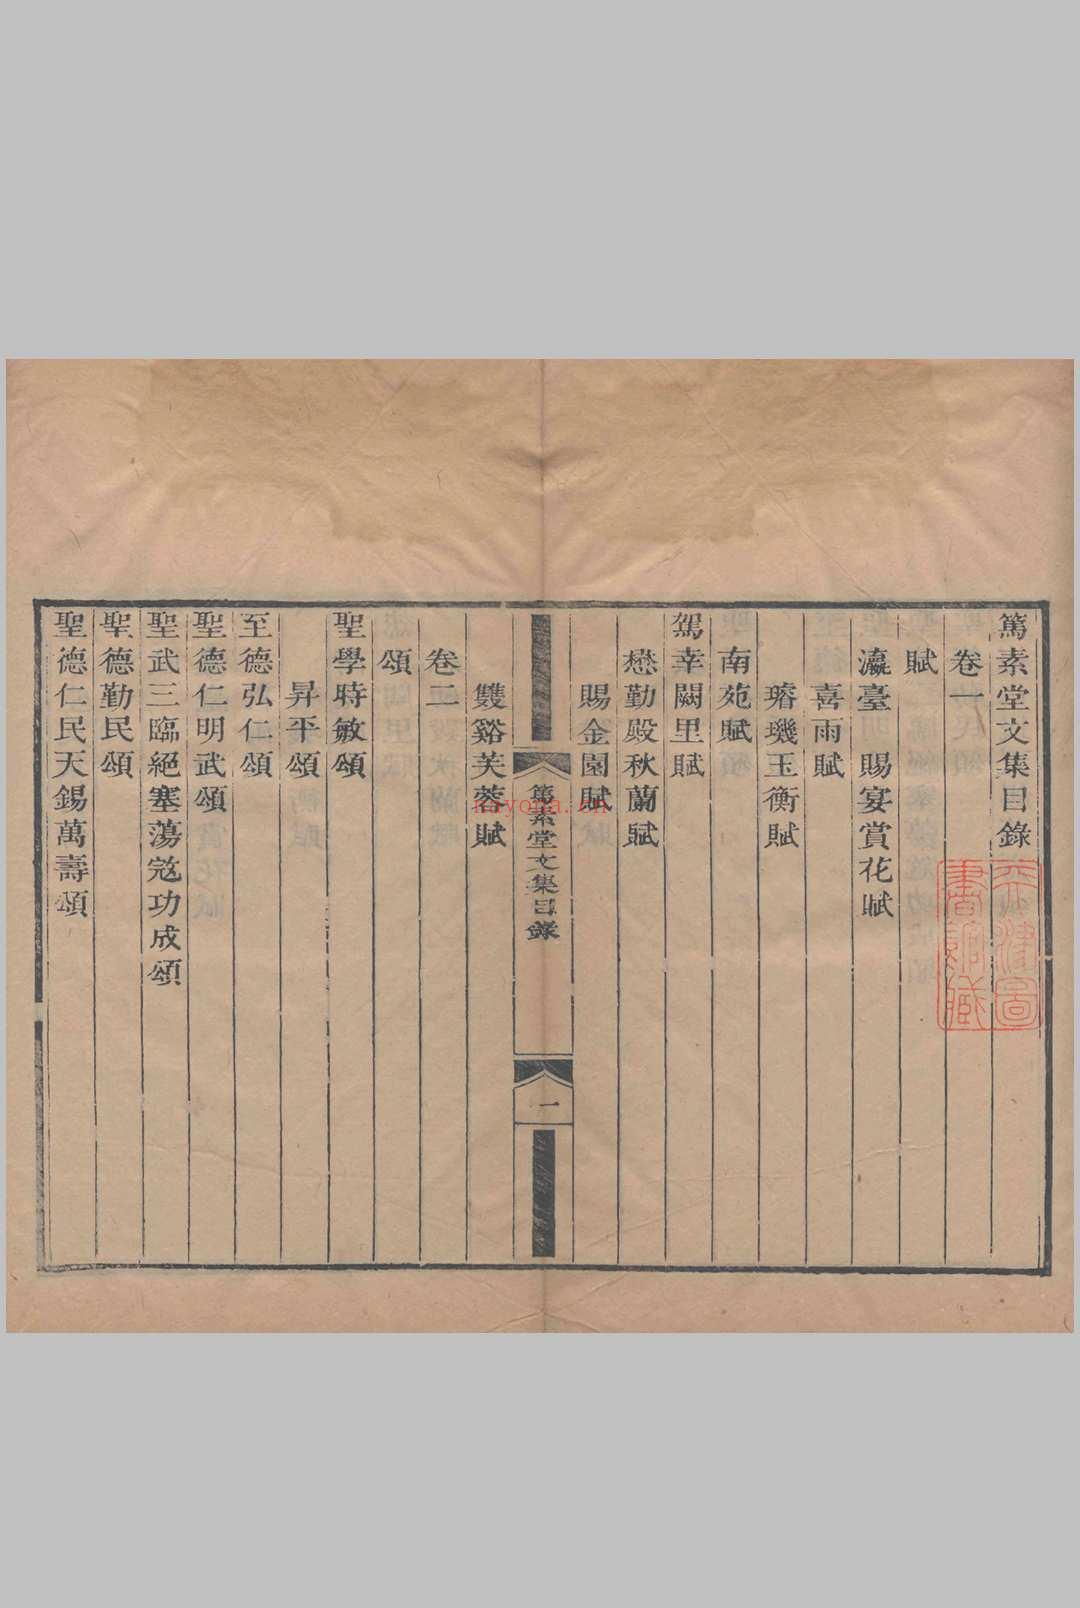 篤素堂文集目錄
卷一
賦
瀛臺　賜宴賞花賦
喜雨賦
璿璣玉衡賦
南苑賦
駕幸闕里賦
懋勤殿秋蘭賦
賜金園賦
篤素堂文集目錄
一
雙谿芙蓉賦
卷二
頌
聖學時敏頌
昇平頌
至德弘仁頌
聖德仁明武頌
聖武三臨絕塞蕩寇功成頌
聖德勤民頌
聖德仁民天錫萬壽頌
天津圖
書館藏
nayona.cn